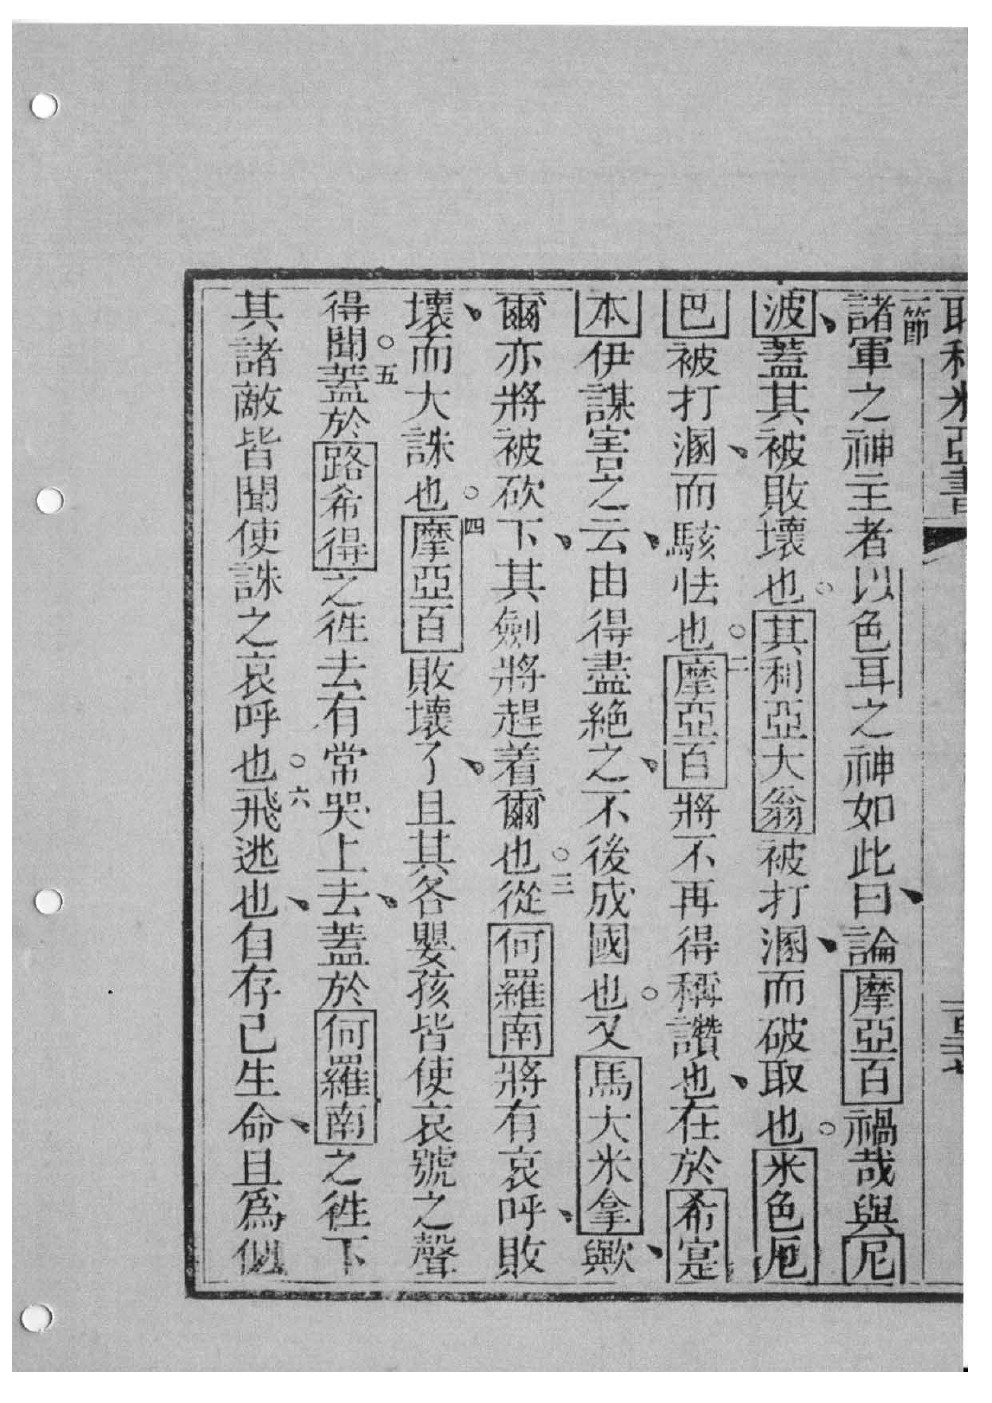 耶利米亞書
一節
諸軍之神主者以色耳之神如此曰論摩亞百禍哉與尼
波蓋其被敗壞也其利亞大翁被打溷而破取也米色厄
巴被打溷而駭怯也二摩亞百將不再得稱讚也在於希寔
本伊謀害之云由得盡絕之不後成國也又馬大米拿歟
爾亦將被砍下其劍將趕着爾也三從何羅南將有哀呼敗
壞而大誅也四摩亞百敗壞了且其各嬰孩皆使哀號之聲
得聞五蓋於路希得之徃去有常哭上去蓋於何羅南之徃下
其諸敵皆聞使誅之哀呼也六飛逃也自存己生命且爲似